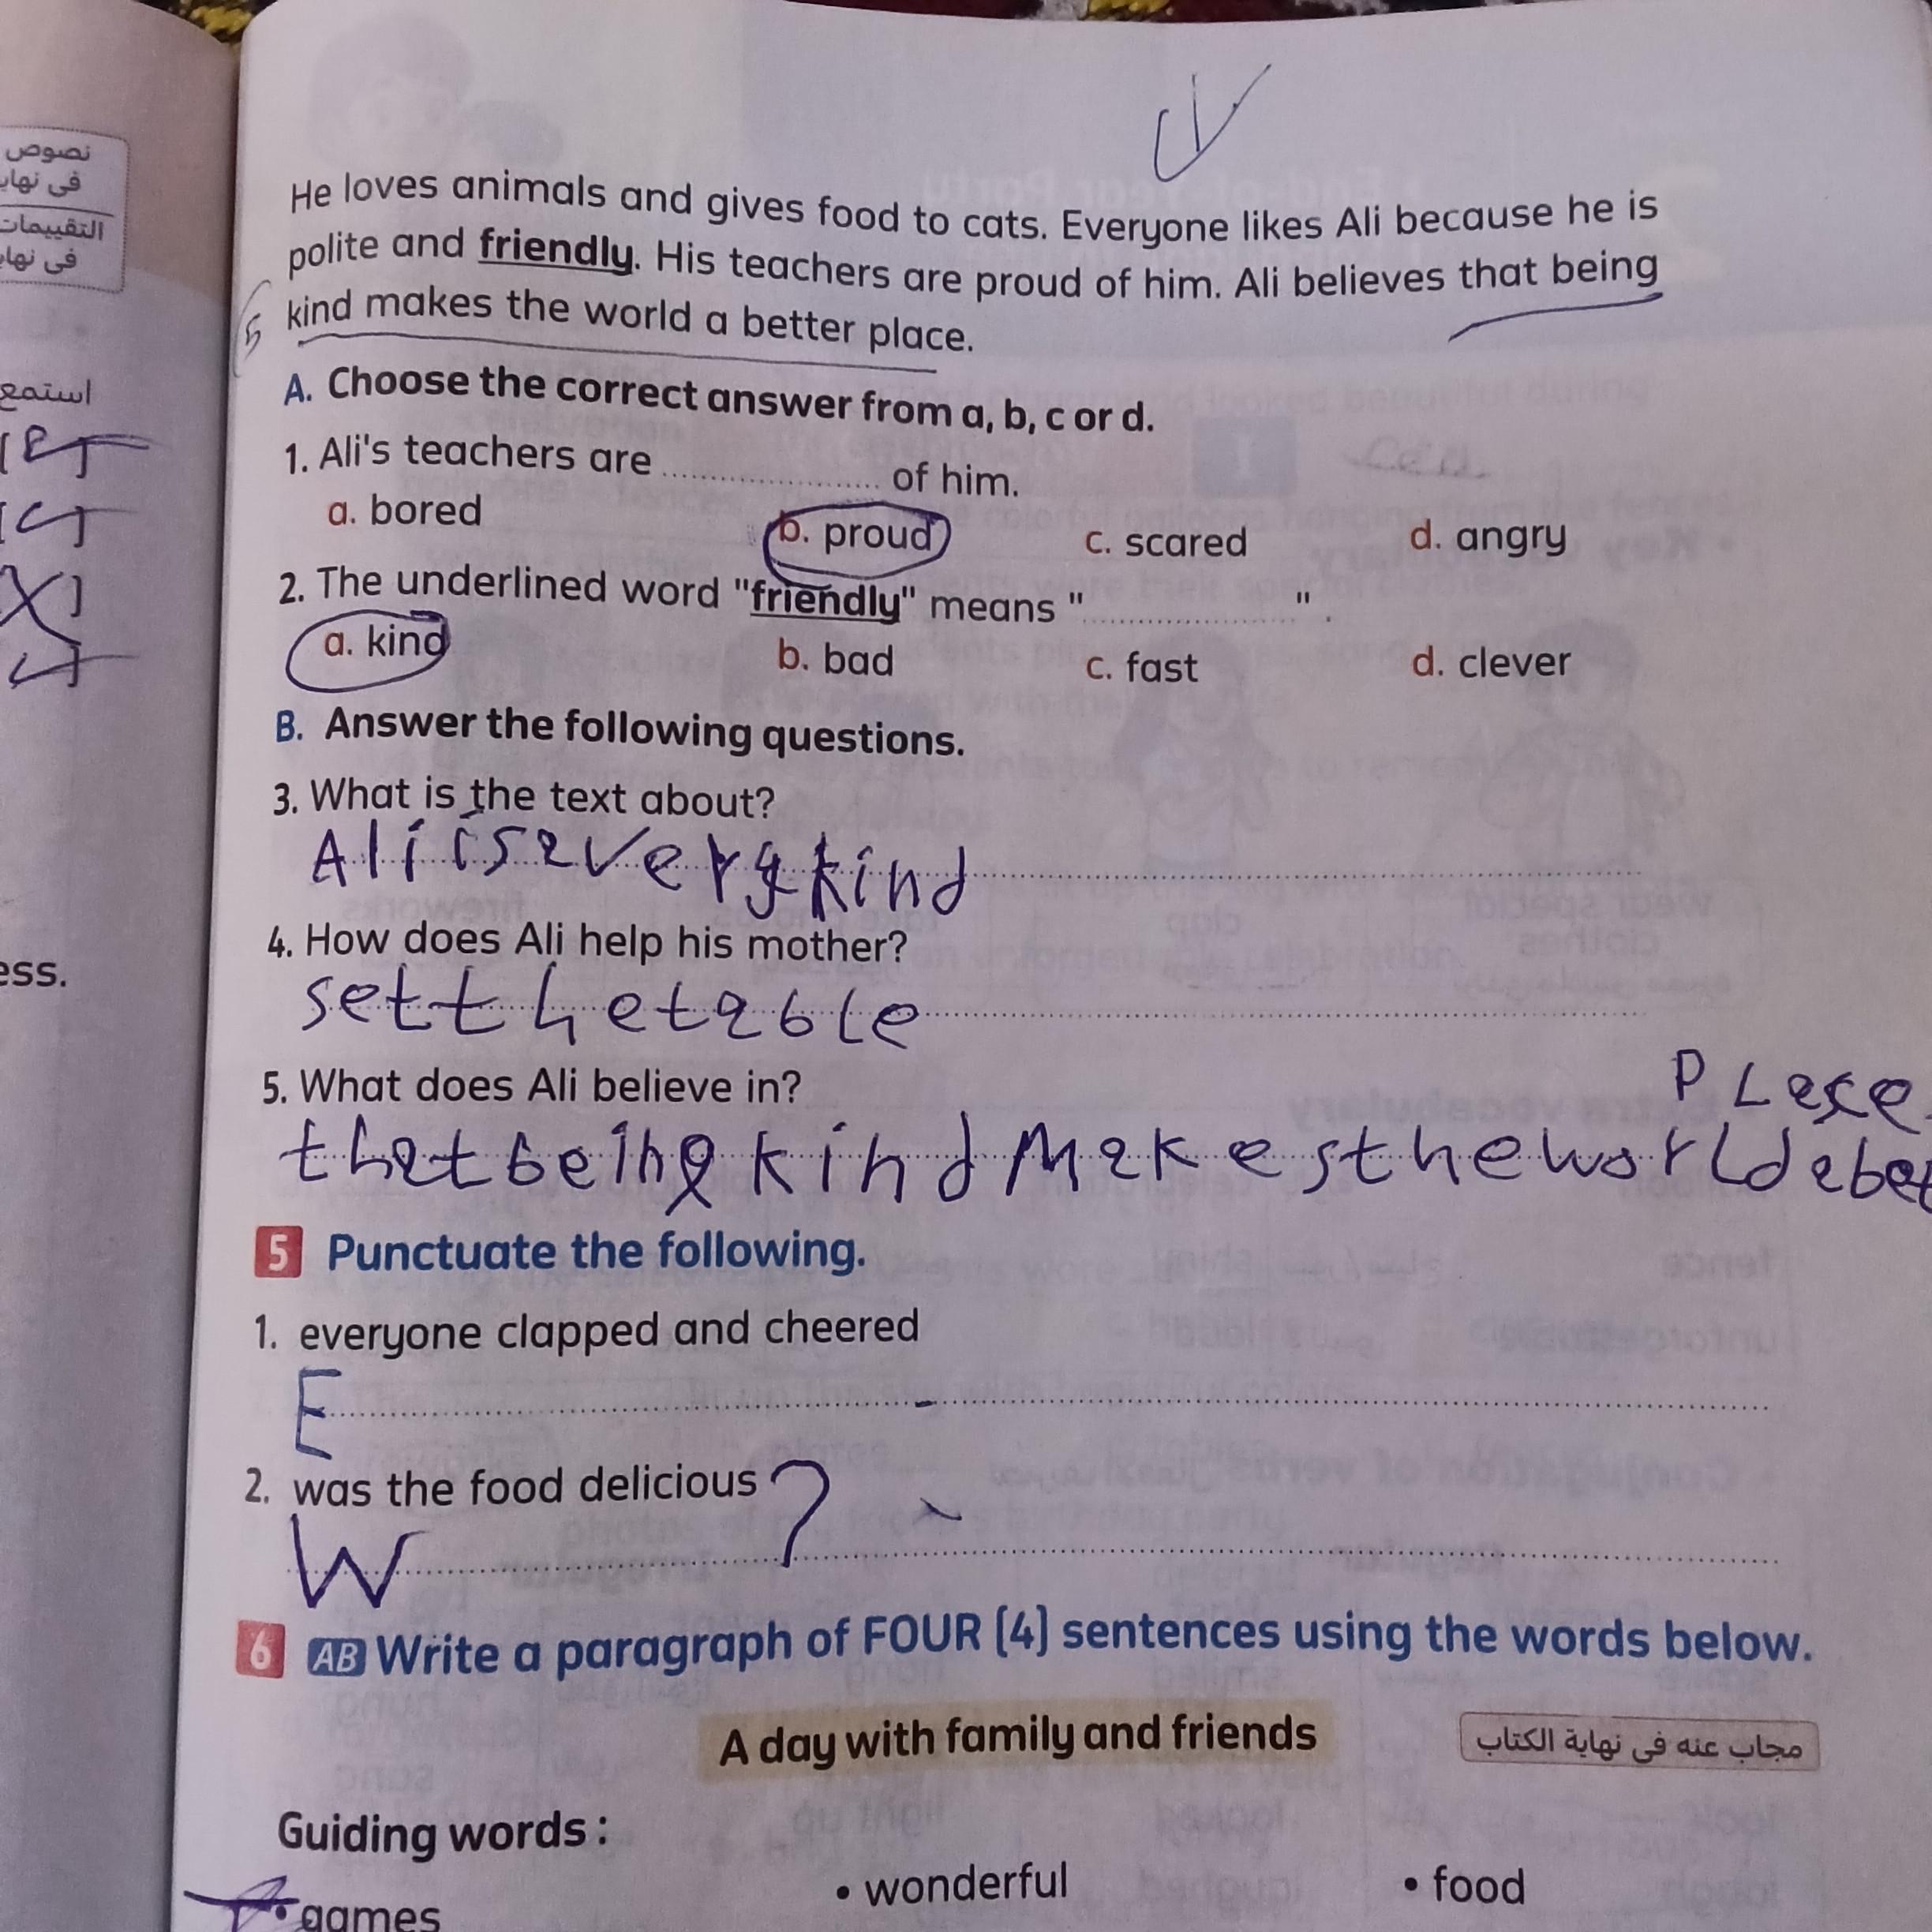 نصوص
فى نهاي
التقييمات
فى نهاي
استمع
ess.
He loves animals and gives food to cats. Everyone likes Ali because he is
polite and friendly. His teachers are proud of him. Ali believes that being
kind makes the world a better place.
A. Choose the correct answer from a, b, c or d.
1. Ali's teachers are .................... of him.
a. bored b. proud c. scared d. angry
2. The underlined word "friendly" means "...................." .
a. kind b. bad c. fast d. clever
B. Answer the following questions.
3. What is the text about?
Ali is a very kind
4. How does Ali help his mother?
set the table
5. What does Ali believe in?
Plece
thet being kind makes the world a bet
5 Punctuate the following.
1. everyone clapped and cheered
E
2. was the food delicious ?
W
6 AB Write a paragraph of FOUR (4) sentences using the words below.
A day with family and friends
مجاب عنه فى نهاية الكتاب
Guiding words :
• games • wonderful • food